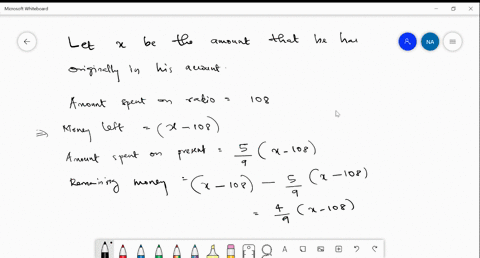 Microsoft Whiteboard
NA
Let x be the amount that be has
originally in his account.
Amount spent on ratio = 108
⇒ Money left = (x - 108)
Amount spent on present = 5/9 (x - 108)
Remaining money = (x - 108) - 5/9 (x - 108)
= 4/9 (x - 108)